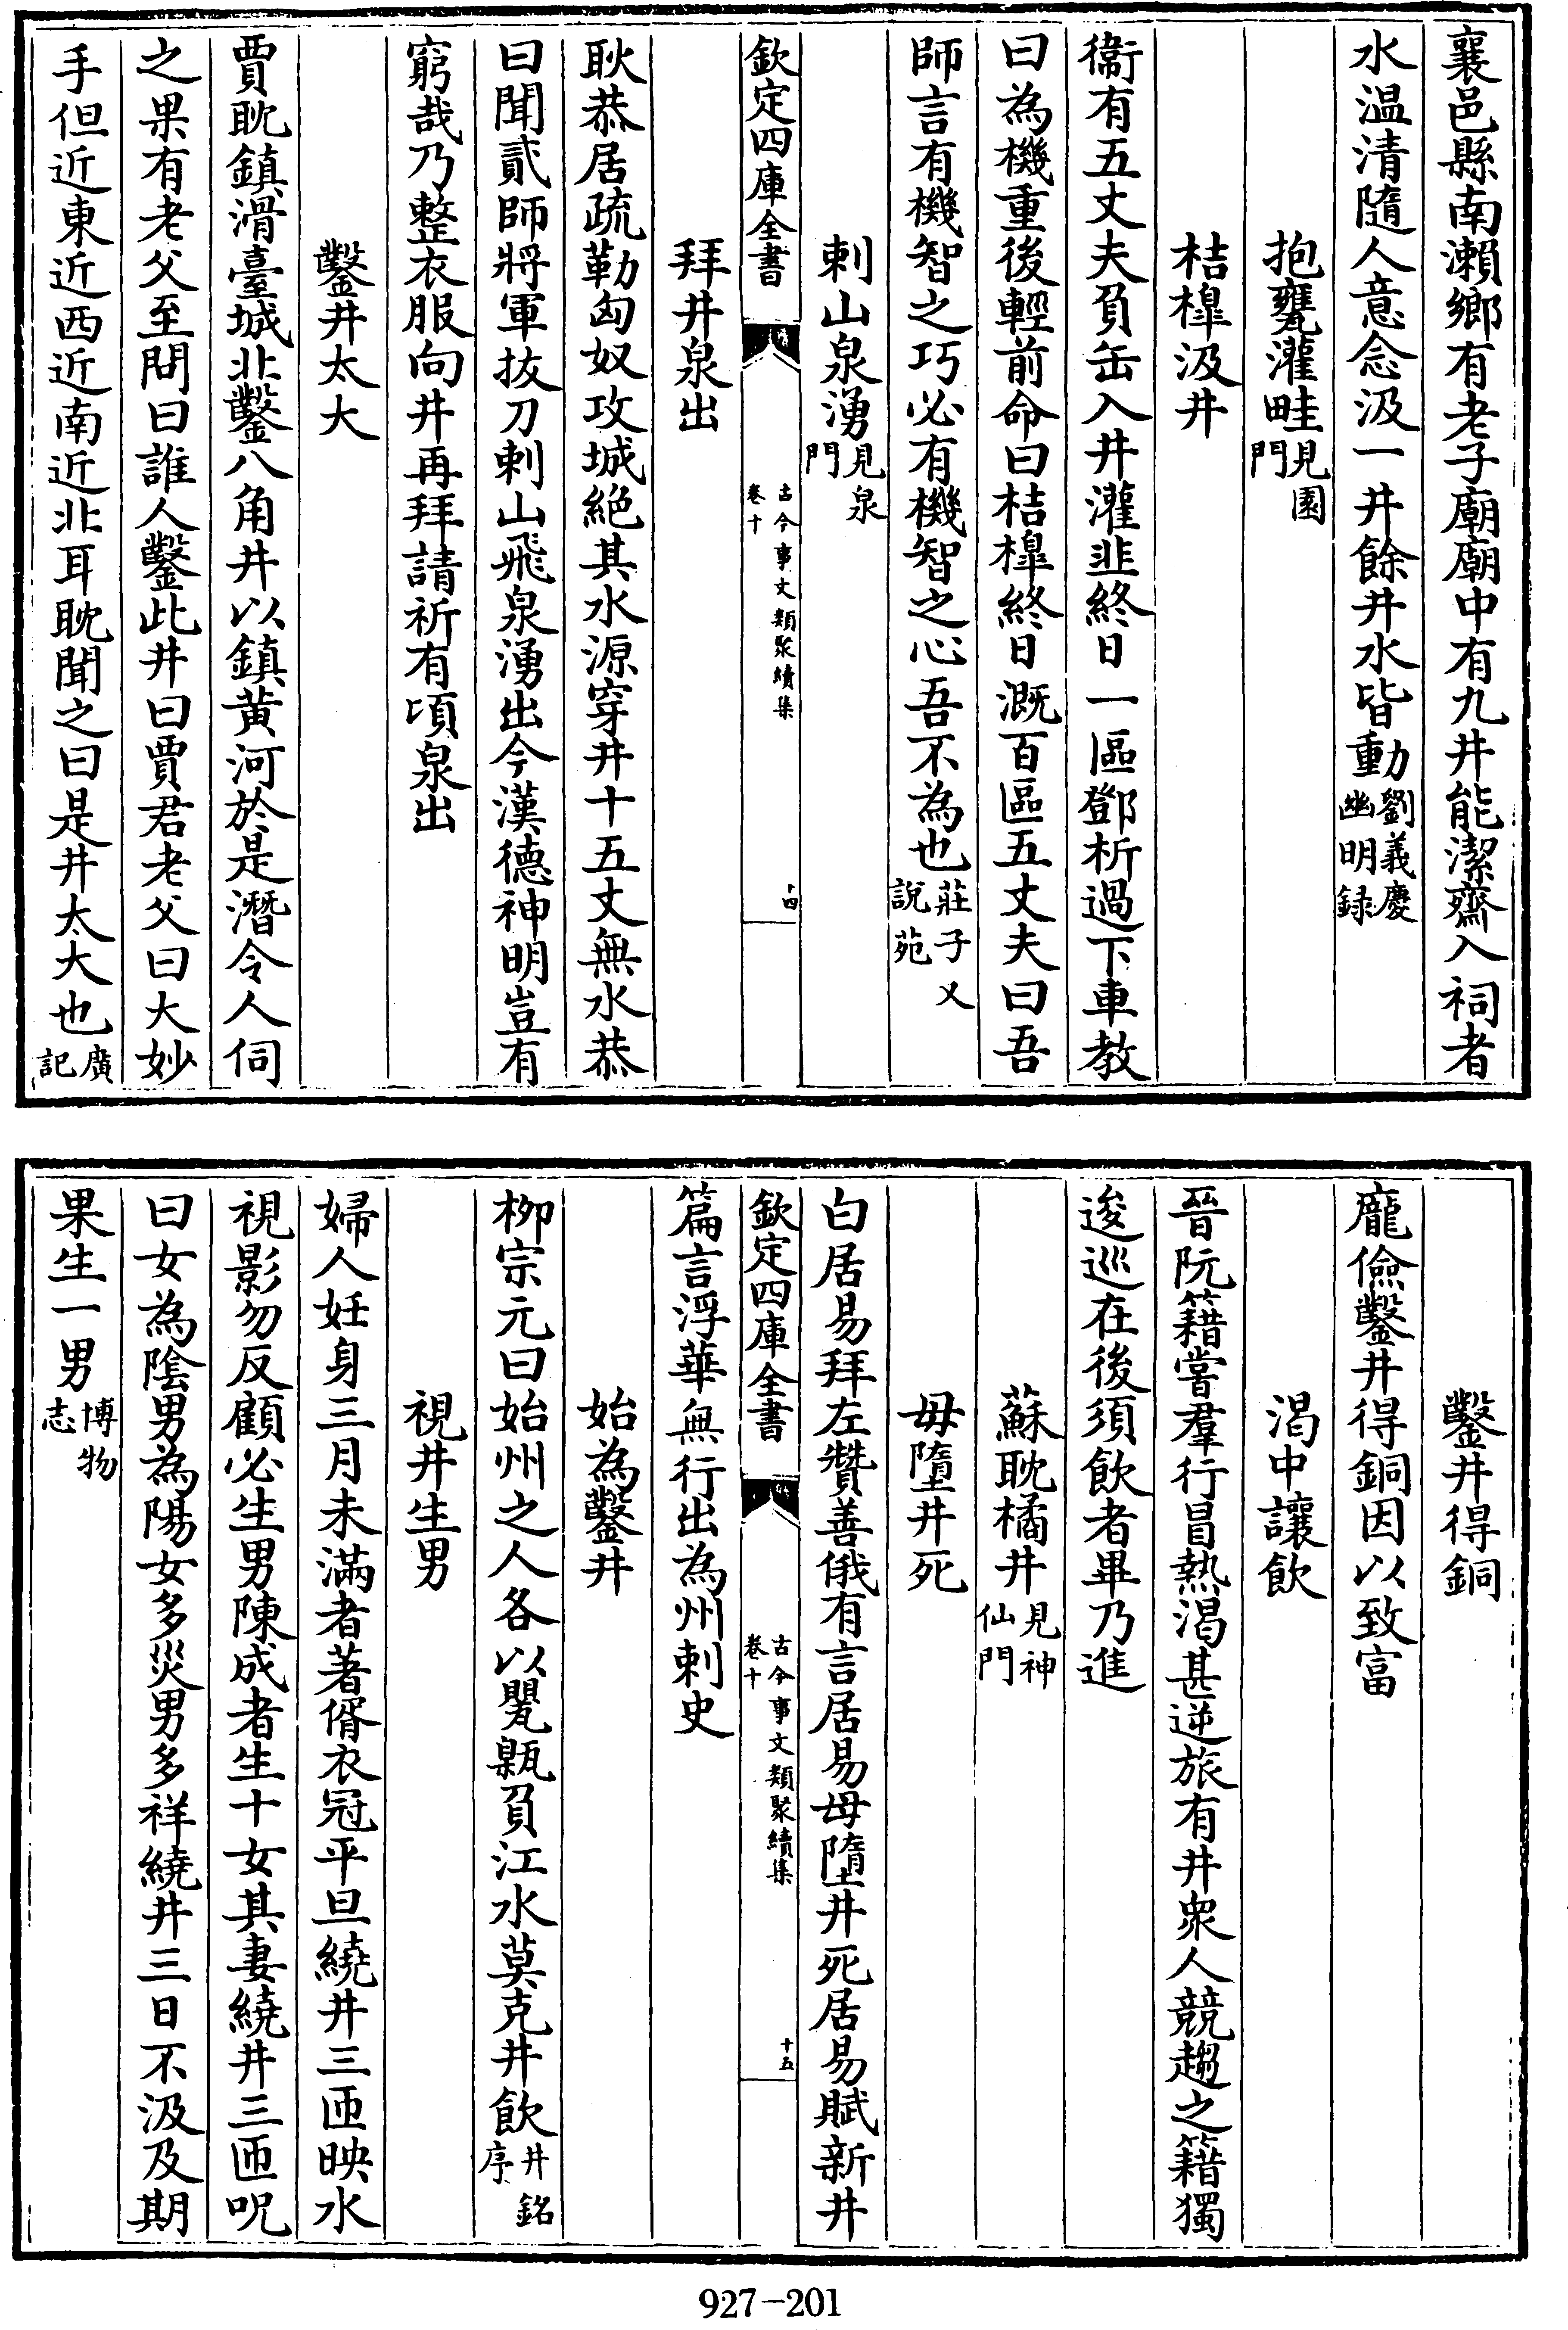 襄邑縣南瀨鄉有老子廟廟中有九井能潔齋入祠者
水温清隨人意念汲一井餘井水皆動劉義慶幽明録
抱甕灌畦見園門
桔橰汲井
衞有五丈夫負缶入井灌韭終日一區鄧析過下車教
曰為機重後輕前命曰桔橰終日溉百區五丈夫曰吾
師言有機智之巧必有機智之心吾不為也莊子又說苑
刺山泉湧見泉門
欽定四庫全書
古今事文類聚續集
卷十
十四
拜井泉出
耿恭居疏勒匈奴攻城絕其水源穿井十五丈無水恭
曰聞貳師將軍拔刀刺山飛泉湧出今漢德神明豈有
窮哉乃整衣服向井再拜請祈有頃泉出
鑿井太大
賈耽鎮滑臺城北鑿八角井以鎮黄河於是潛令人伺
之果有老父至問曰誰人鑿此井曰賈君老父曰大妙
手但近東近西近南近北耳耽聞之曰是井太大也廣記
鑿井得銅
龐儉鑿井得銅因以致富
渴中讓飲
晉阮籍嘗羣行冒熱渴甚逆旅有井衆人競趨之籍獨
逡巡在後須飲者畢乃進
蘇耽橘井見神仙門
毋墮井死
白居易拜左贊善俄有言居易母墮井死居易賦新井
欽定四庫全書
古今事文類聚續集
卷十
十五
篇言浮華無行出為州刺史
始為鑿井
柳宗元曰始州之人各以甖甀負江水莫克井飲井銘序
視井生男
婦人妊身三月未滿者著壻衣冠平旦繞井三匝映水
視影勿反顧必生男陳成者生十女其妻繞井三匝呪
曰女為陰男為陽女多災男多祥繞井三日不汲及期
果生一男博物志
927-201